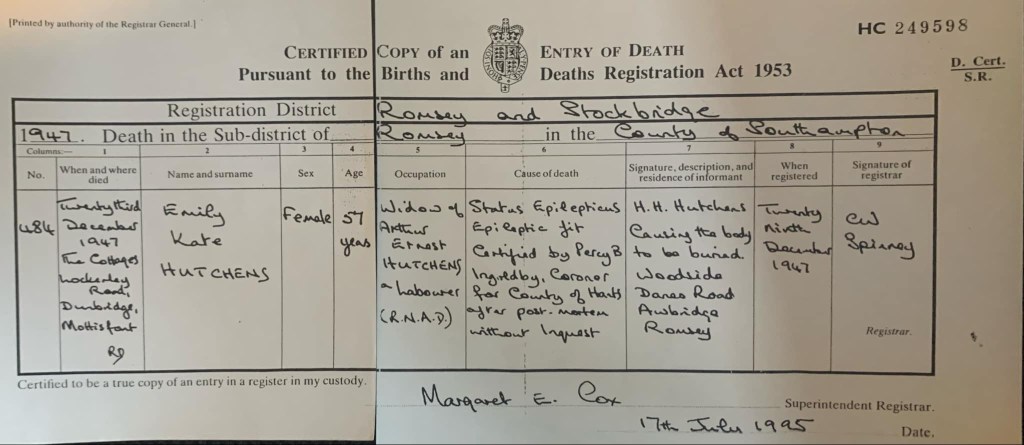 [Printed by authority of the Registrar General.]
HC 249598
CERTIFIED COPY OF AN ENTRY OF DEATH
Pursuant to the Births and Deaths Registration Act 1953
D. Cert.
S.R.
Registration District Romsey and Stockbridge
1947. Death in the Sub-district of Romsey in the County of Southampton
Columns:— 1 2 3 4 5 6 7 8 9
No.
When and where
died
Name and surname
Sex
Age
Occupation
Cause of death
Signature, description, and
residence of informant
When
registered
Signature of
registrar
484
Twenty third
December
1947
The Cottages
Lockerley
Road,
Dunbridge,
Mottisfont
RD
Emily
Kate
HUTCHENS
Female
57
years
Widow of
Arthur
Ernest
HUTCHENS
a Labourer
(R.N.A.D.)
Status Epilepticus
Epileptic fit
Certified by Percy B
Ingoldby, Coroner
for County of Hants
after post-mortem
without Inquest
H.H. Hutchens
Causing the body
to be buried
Woodside
Danes Road
Awbridge
Romsey
Twenty
ninth
December
1947
CW
Spinney
Registrar.
Certified to be a true copy of an entry in a register in my custody.
Margaret E. Cox Superintendent Registrar.
17th July 1995 Date.